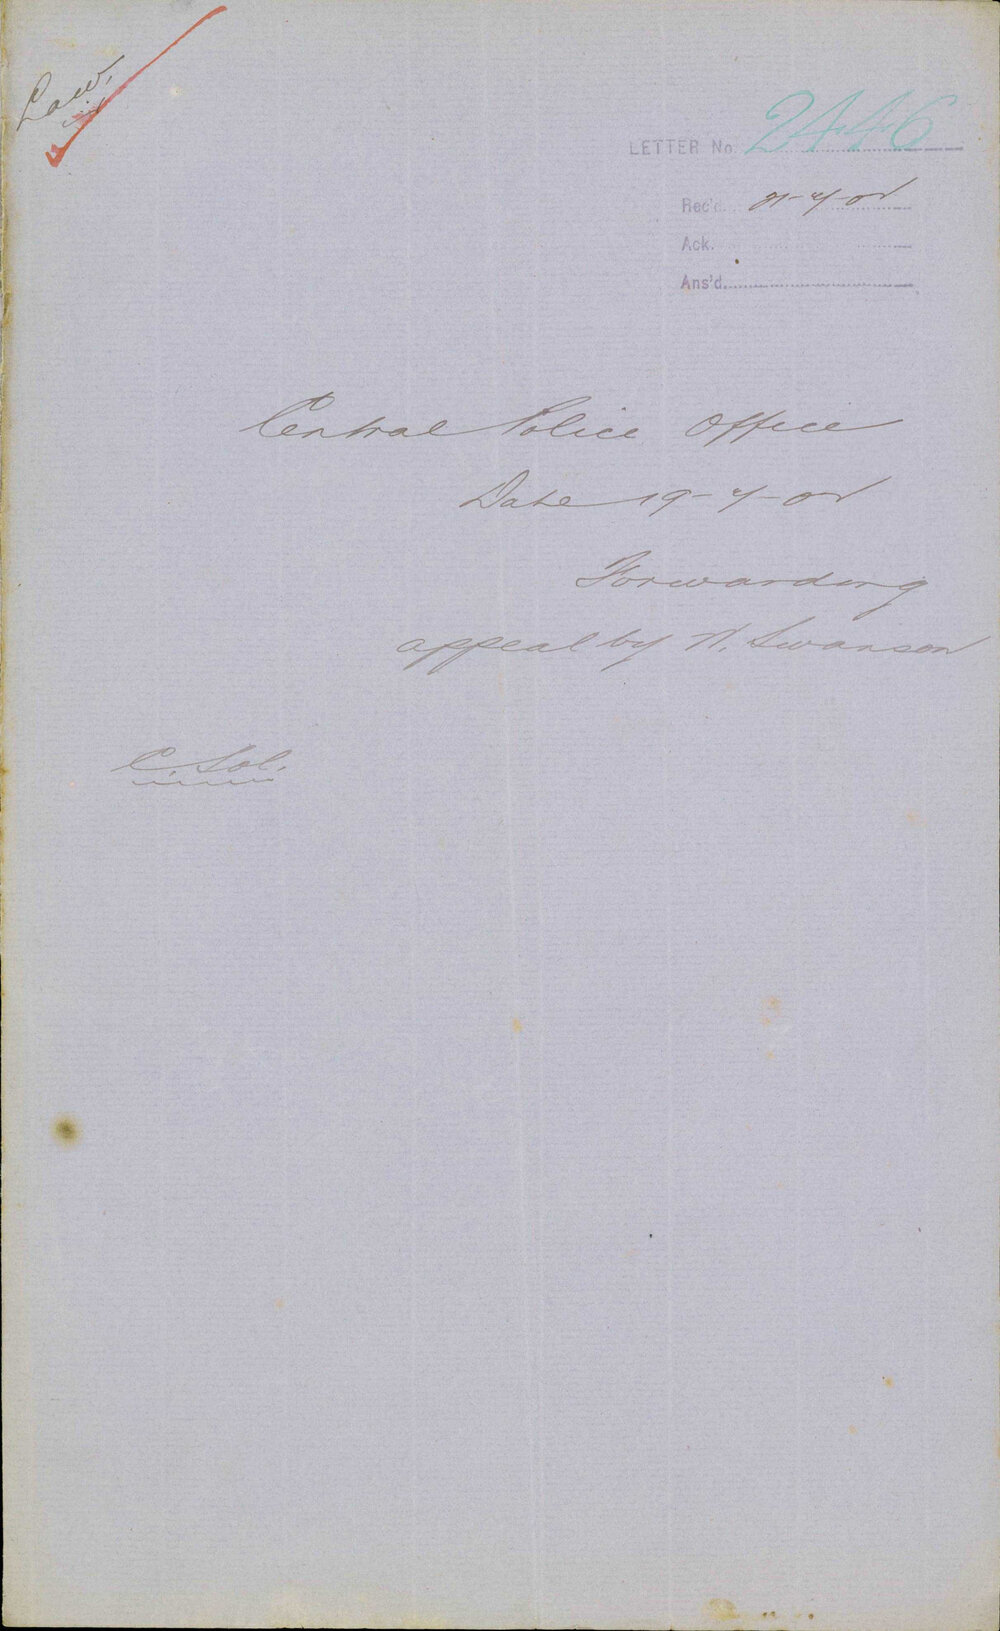 Law.
LETTER No. 2446
Rec'd. 21-4-02
Ack.
Ans'd.
Central Police Office
Date 19-4-02
Forwarding
appeal by N. Swanson
C. Sol.